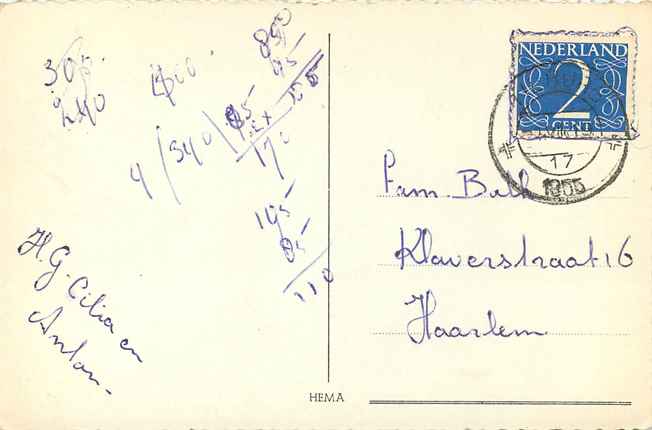 305
240
4/340\85
2x
170
195
85
110
H.G. Cilia en
Anton-
HEMA
NEDERLAND
2
CENT
17
1955
Fam. Balk
Klaverstraat 16
Haarlem